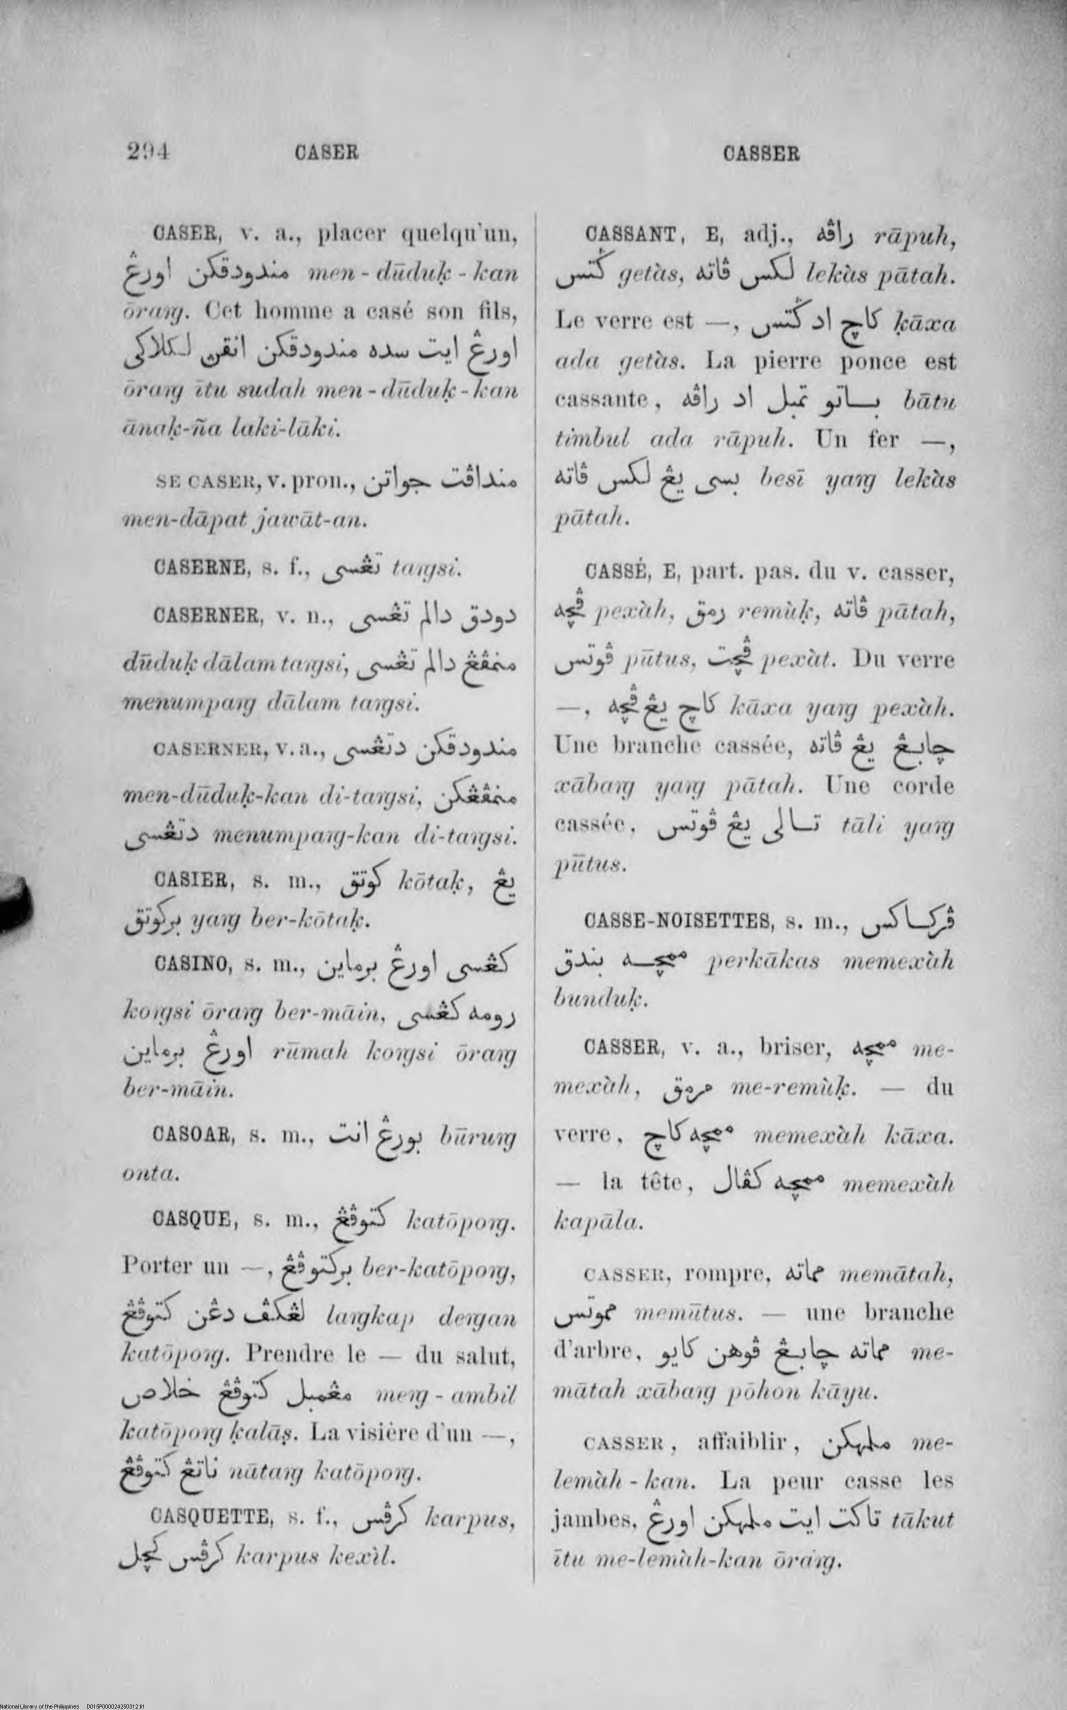 294 CASER
CASSER
CASER, v. a., placer quelqu'un,
مندودقکن اورڠ men-dūduḳ-kan
ōraŋ. Cet homme a casé son fils,
اورڠ ايت سده مندودقکن انقڽ لکلاکي
ōraŋ ītu sudah men-dūduḳ-kan
ānaḳ-ña laki-lāki.
SE CASER, v. pron., منداڤت جواتن
men-dāpat jawāt-an.
CASERNE, s. f., تڠسى taŋsi.
CASERNER, v. n., دودق دالم تڠسى
dūduḳ dālam taŋsi, منمڤڠ دالم تڠسى
menumpaŋ dālam taŋsi.
CASERNER, v. a., مندودقکن دتڠسى
men-dūduḳ-kan di-taŋsi, منمڤڠکن
دتڠسى menumpaŋ-kan di-taŋsi.
CASIER, s. m., کوتق kōtaḳ, يڠ
برکوتق yaŋ ber-kōtaḳ.
CASINO, s. m., کڠسى اورڠ برماين
koŋsi ōraŋ ber-māin, رومه کڠسى
اورڠ برماين rūmah koŋsi ōraŋ
ber-māin.
CASOAR, s. m., بورڠ انت būruŋ
onta.
CASQUE, s. m., کتوڤڠ katōpoŋ.
Porter un —, برکتوڤڠ ber-katōpoŋ,
لڠکڤ دڠن کتوڤڠ laŋkap deŋan
katōpoŋ. Prendre le — du salut,
مڠمبل کتوڤڠ خلاص meŋ-ambil
katōpoŋ ḳalāṣ. La visière d'un —,
ناتڠ کتوڤڠ nātaŋ katōpoŋ.
CASQUETTE, s. f., کرڤس karpus,
کرڤس کچل karpus kexìl.
CASSANT, E, adj., راڤه rāpuh,
ڬتس getàs, لکس ڤاته lekàs pātah.
Le verre est —, کاچ اد ڬتس ḳāxa
ada getàs. La pierre ponce est
cassante, باتو تمبل اد راڤه bātu
timbul ada rāpuh. Un fer —,
بسى يڠ لکس ڤاته besī yaŋ lekàs
pātah.
CASSÉ, E, part. pas. du v. casser,
ڤچه pexàh, رمق remùḳ, ڤاته pātah,
ڤوتس pūtus, ڤچت pexàt. Du verre
—, کاچ يڠ ڤچه kāxa yaŋ pexàh.
Une branche cassée, چابڠ يڠ ڤاته
xābaŋ yaŋ pātah. Une corde
cassée, تالى يڠ ڤوتس tāli yaŋ
pūtus.
CASSE-NOISETTES, s. m., ڤرکاکس
ممچه بندق perkākas memexàh
bunduḳ.
CASSER, v. a., briser, ممچه me-
mexàh, مرمق me-remùḳ. — du
verre, ممچه کاچ memexàh kāxa.
— la tête, ممچه کڤال memexàh
kapāla.
CASSER, rompre, مماته memātah,
مموتس memūtus. — une branche
d'arbre, مماته چابڠ ڤوهن کايو me-
mātah xābaŋ pōhon kāyu.
CASSER, affaiblir, ملمهکن me-
lemàh-kan. La peur casse les
jambes, تاکت ايت ملمهکن اورڠ tākut
ītu me-lemàh-kan ōraŋ.
National Library of the Philippines